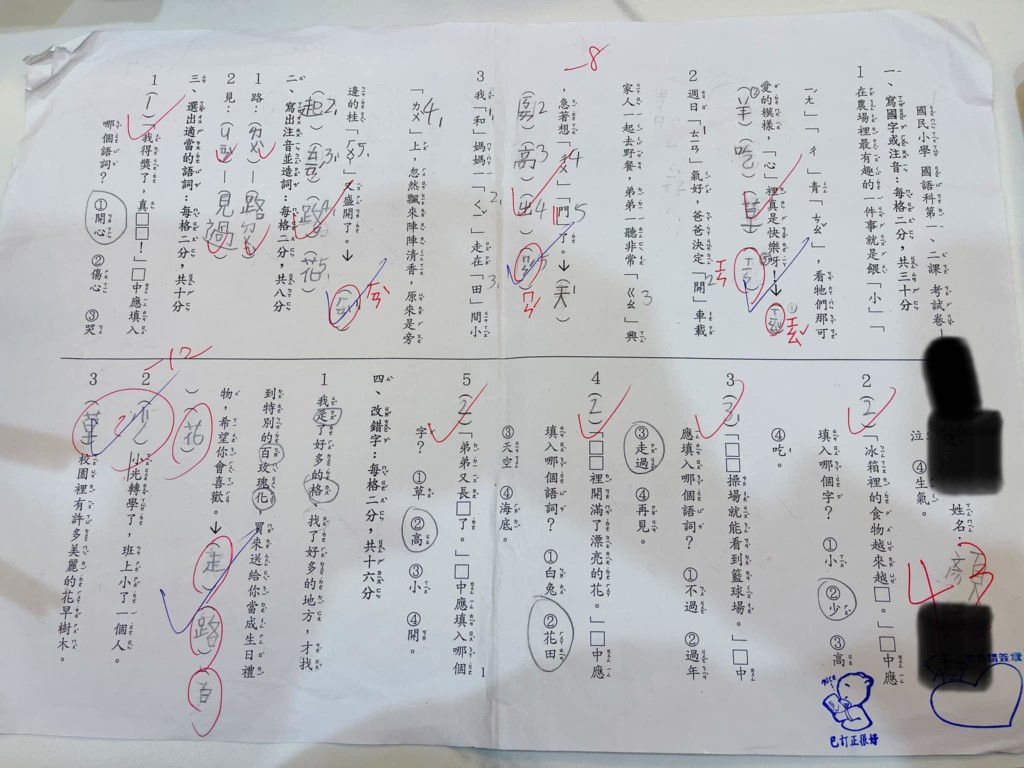 國民小學 國語科第一、二課 考試卷
姓名：彥
43
一、寫國字或注音：每格二分，共三十分
1 在農場裡最有趣的一件事就是餵「小」「
ㄧㄤˊ」「ㄔ」青「ㄘㄠˇ」，看牠們那可
愛的模樣，「心」裡真是快樂呀！↓
（羊）（吃）（草）
2 週日「ㄊㄧㄢ」氣好，爸爸決定「開」車載
家人一起去野餐，弟弟一聽非常「ㄍㄠ」興
，急著想「ㄔㄨ」「門」了。↓（天）
（高）（出）
3 我「和」媽媽一「ㄑㄧˇ」走在「田」間小
「ㄌㄨˋ」上，忽然飄來陣陣清香，原來是旁
邊的桂「ㄏㄨㄚ」又盛開了。↓
（起）（路）（花）
-8
二、寫出注音並造詞：每格二分，共八分
1 路：（ㄌㄨˋ）（路）
2 見：（ㄐㄧㄢˋ）（見過）
三、選出適當的語詞：每格二分，共十分
1（1）我得獎了，真□□！」□中應填入
哪個語詞？ ①開心 ②傷心 ③哭
泣 ④生氣。
2（2）「冰箱裡的食物越來越□。」□中應
填入哪個字？ ①小 ②少 ③高
④吃。
3（3）「□□操場就能看到籃球場。」□中
應填入哪個語詞？ ①不過 ②過年
③走過 ④再見。
4（2）「□□裡開滿了漂亮的花。」□中應
填入哪個語詞？ ①白兔 ②花田
③天空 ④海底。
5（2）「弟弟又長□了。」□中應填入哪個
字？ ①草 ②高 ③小 ④開。
四、改錯字：每格二分，共十六分
1 我是了好多的格、找了好多的地方，才找
到特別的百玫瑰化，買來送給你當成生日禮
物，希望你會喜歡。↓（走）（路）（白）
（花）
-12
2（少）小光轉學了，班上小了一個人。
3（草）校園裡有許多美麗的花早樹木。
1
Nice
已訂正很好